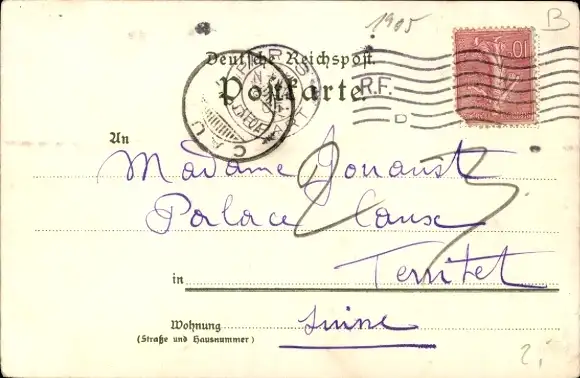 1905
B
Deutsche Reichspost.
Postkarte.
R.F.
D
10
PARIS
DÉPART
CAU
An
Madame Jouaust
Palace Caux
23
in Territet
Wohnung Suisse
(Straße und Hausnummer)
2,